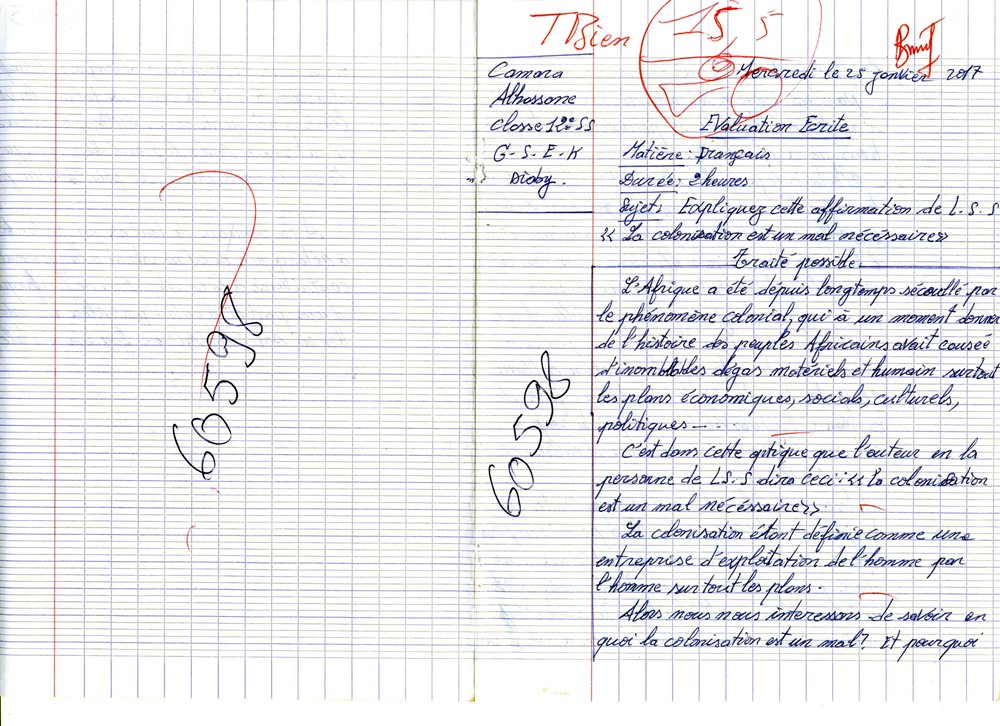 TBien
15,5
20
Mercredi le 25 janvier 2017
Camara
Alhassane
Classe 12e SS
G-S-E-K
Dioby.
Evaluation Ecrite
Matière: Français
Durée: 2heures
Sujet: Expliquez cette affirmation de L.S.S
<< La colonisation est un mal nécéssaire>>
Traité possible
L'Afrique a été depuis longtemps sécoullé par
le phénomène colonial, qui à un moment donner
de l'histoire des peuples Africains avait causée
d'inomblables dégas matériels et humain surtout
les plans économiques, socials, culturels,
politiques - ...
C'est dans cette optique que l'auteur en la
personne de L.S.S dira ceci: << la colonisation
est un mal nécéssaire>>.
La colonisation étant définie comme une
entreprise d'exploitation de l'homme par
l'homme sur tout les plans.
Alors nous nous interessons de savoir en
quoi la colonisation est un mal? Et pourquoi
66598
60598